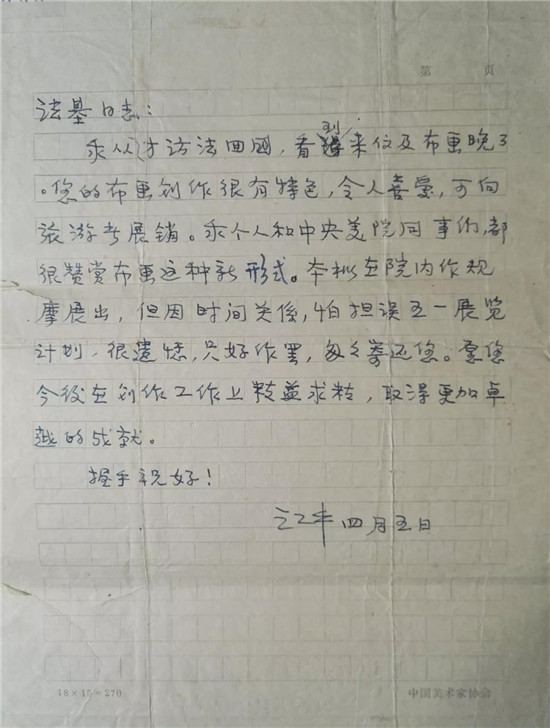 第 页
法基同志:
我从才访法回国,看到来信及布画晚了
。您的布画创作很有特色,令人喜爱,可向
旅游者展销。我个人和中央美院同事们,都
很赞赏布画这种新形式。本拟在院内作观
摩展出,但因时间关係,怕担误五一展览
计划,很遗憾,只好作罢,匆匆寄还您。愿您
今后在创作工作上精益求精,取得更加卓
越的成就。
握手祝好!
江丰 四月五日
18×15=270 中国美术家协会